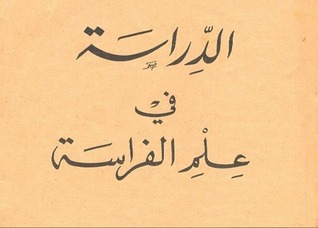 الدِّراسَة
في
عِلْمِ الفراسَة